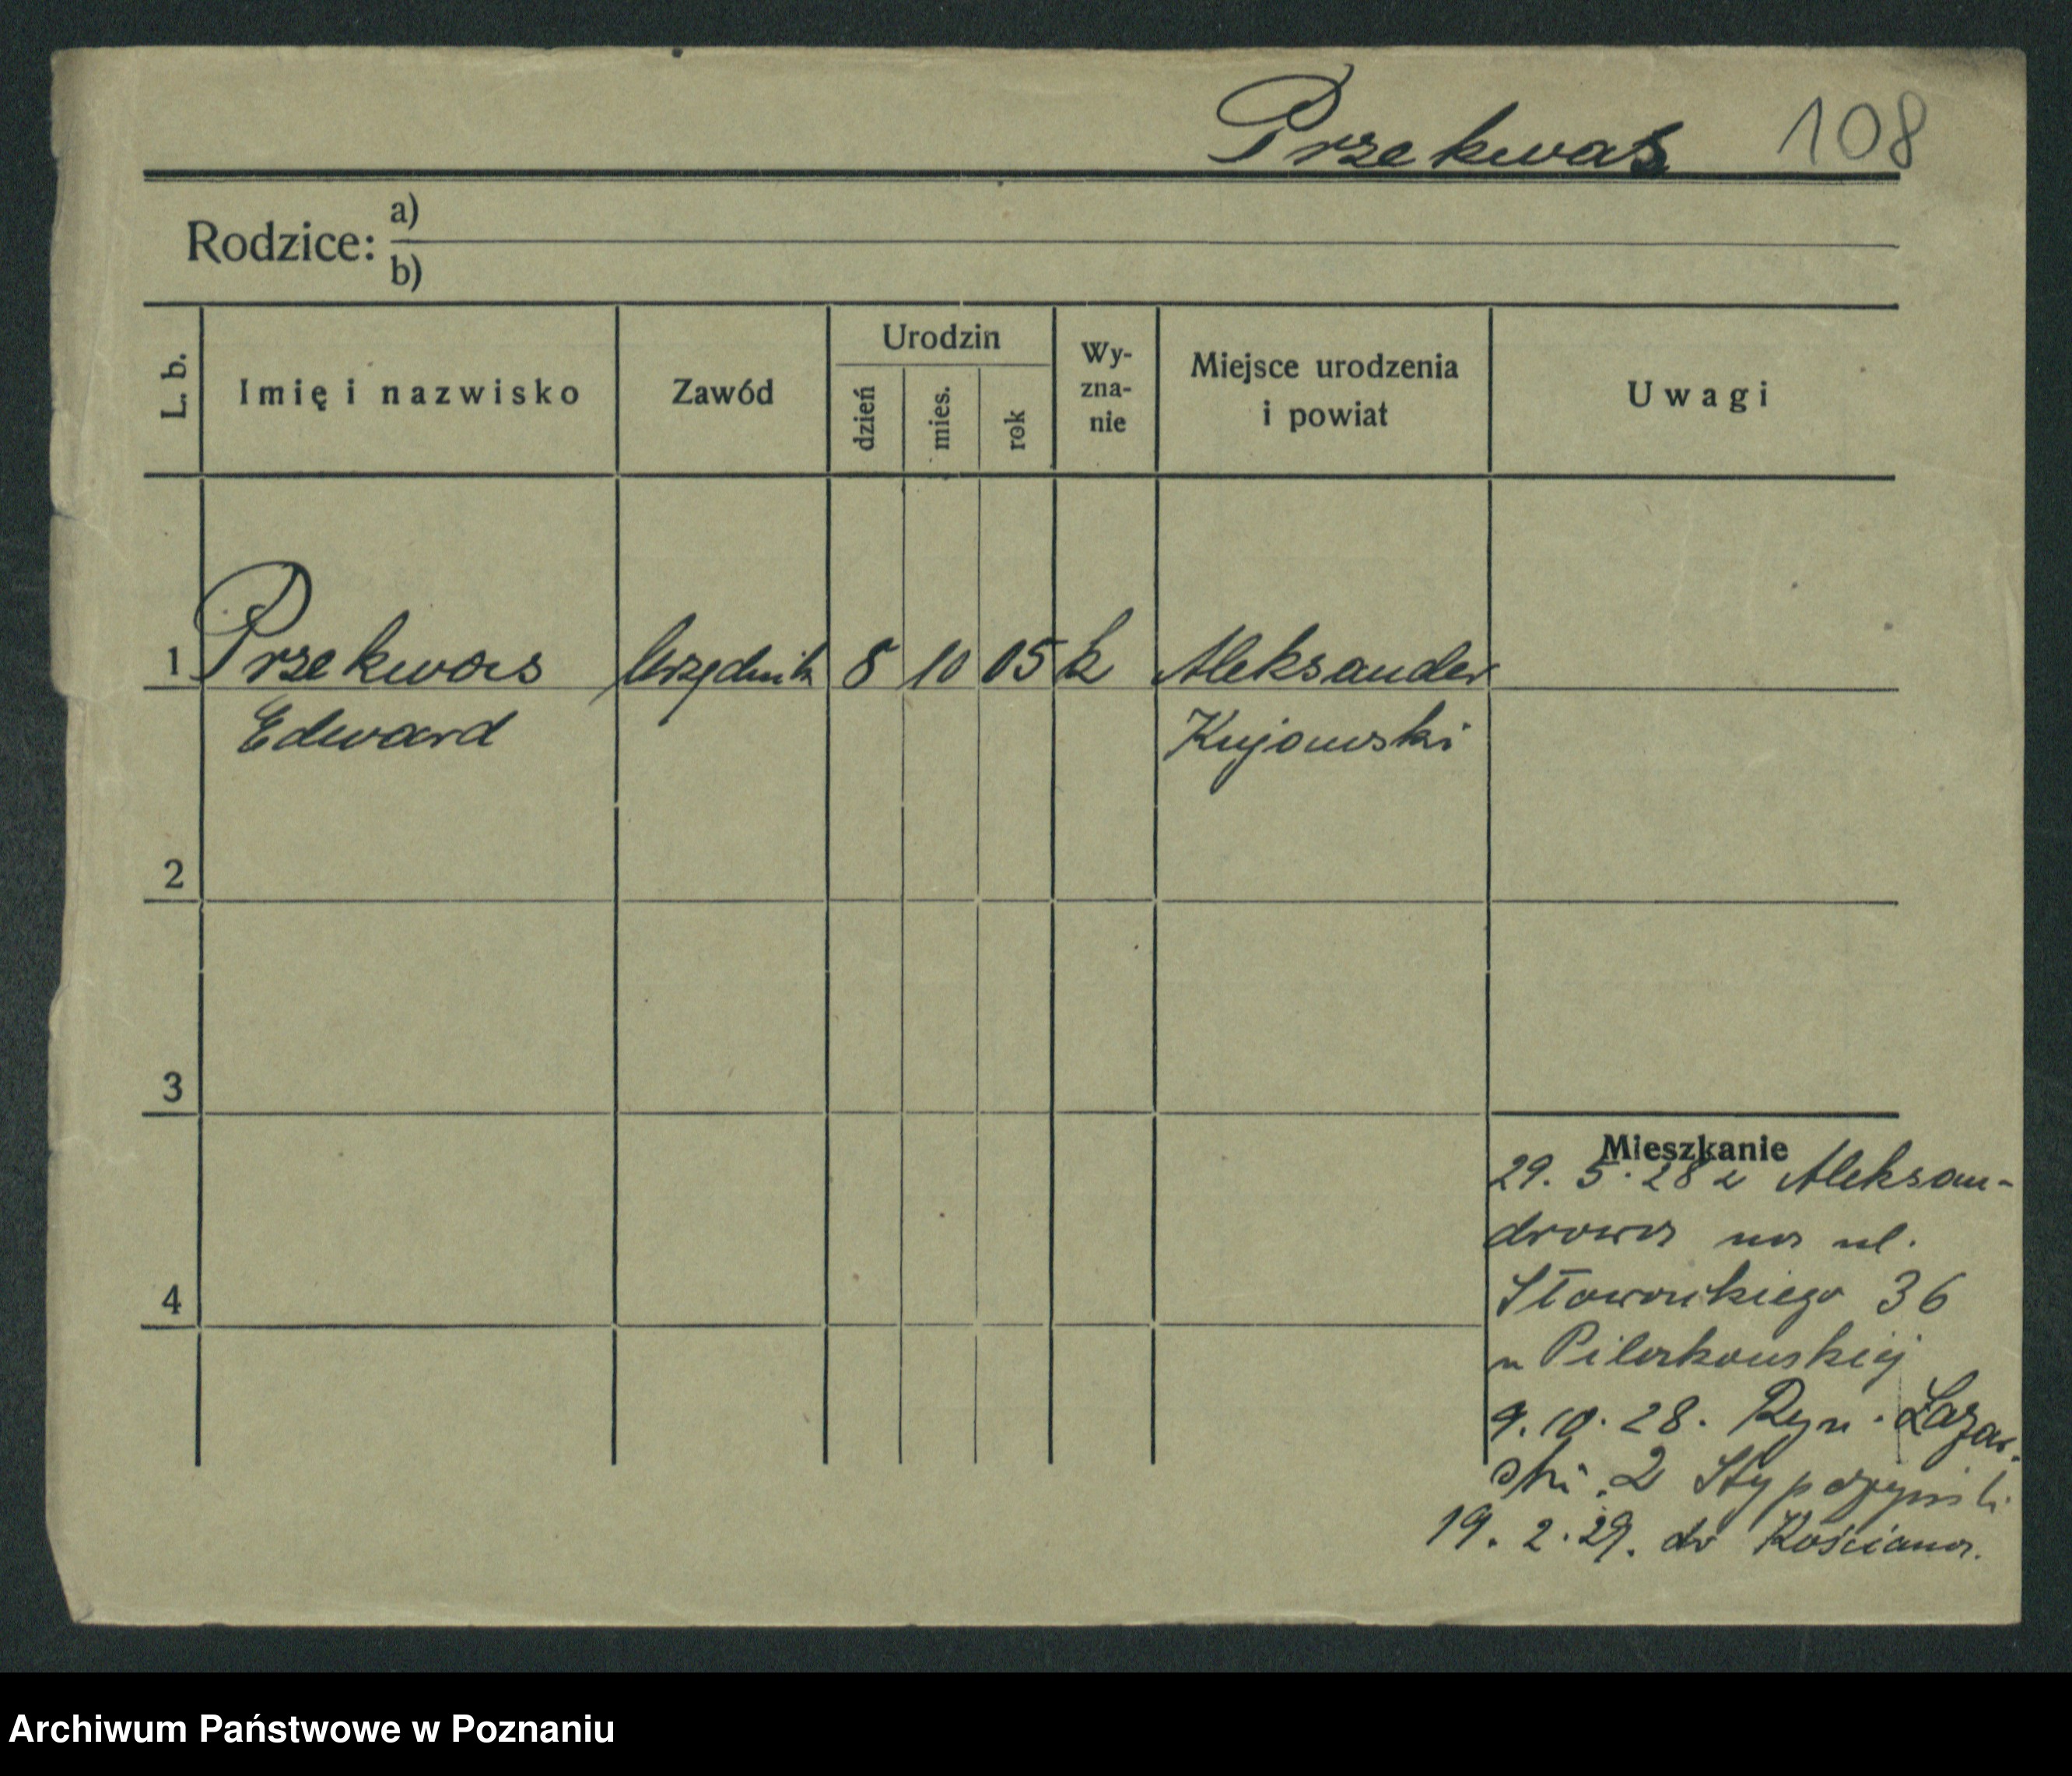 Przekwas 108
Rodzice: a)
b)
L. b. Imię i nazwisko Zawód Urodzin dzień mies. rok Wy-zna-nie Miejsce urodzenia i powiat Uwagi
1 Przekwas Urzędnik 8 10 05 k Aleksander
Edward Kujowski
2
3
4
Mieszkanie
29. 5. 28 z Aleksan-
drowa na ul.
36
u
9. 10. 28. Ryn. Łazar.
ski. 2
19. 2. 29. do Kościana.
Archiwum Państwowe w Poznaniu